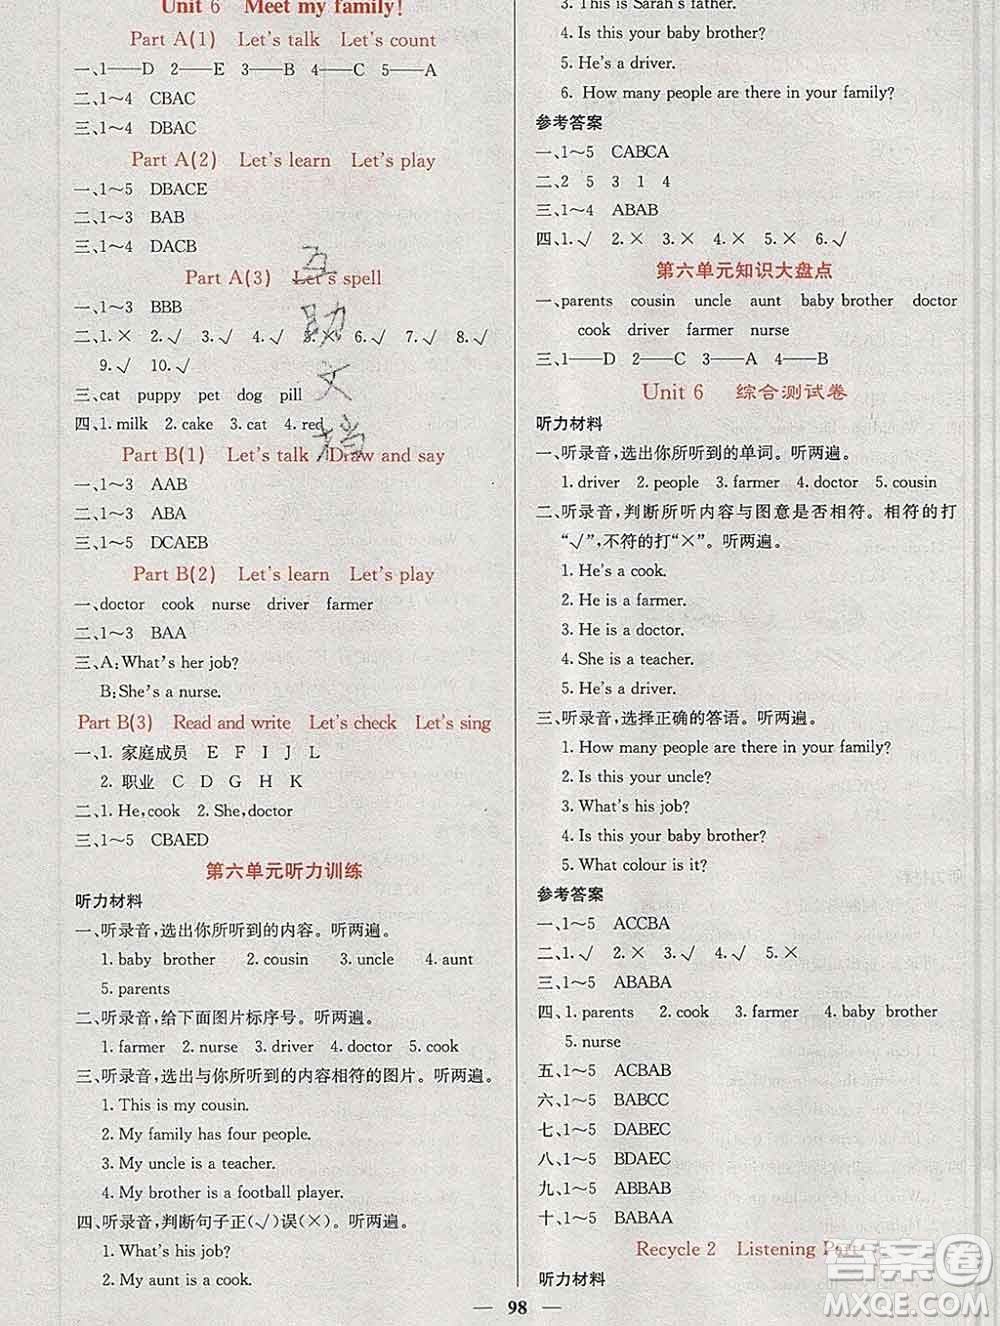 Unit 6 Meet my family!
Part A(1) Let's talk Let's count
一、1——D 2——E 3——B 4——C 5——A
二、1～4 CBAC
三、1～4 DBAC
Part A(2) Let's learn Let's play
一、1～5 DBACE
二、1～3 BAB
三、1～4 DACB
Part A(3) Let's spell
一、1～3 BBB
二、1.× 2.√ 3.√ 4.√ 5.× 6.√ 7.√ 8.√
9.√ 10.√
三、cat puppy pet dog pill
四、1. milk 2. cake 3. cat 4. red
Part B(1) Let's talk Draw and say
一、1～3 AAB
二、1～3 ABA
三、1～5 DCAEB
Part B(2) Let's learn Let's play
一、doctor cook nurse driver farmer
二、1～3 BAA
三、A:What's her job?
B:She's a nurse.
Part B(3) Read and write Let's check Let's sing
一、1. 家庭成员 E F I J L
2. 职业 C D G H K
二、1. He,cook 2. She,doctor
三、1～5 CBAED
第六单元听力训练
听力材料
一、听录音,选出你所听到的内容。听两遍。
1. baby brother 2. cousin 3. uncle 4. aunt
5. parents
二、听录音,给下面图片标序号。听两遍。
1. farmer 2. nurse 3. driver 4. doctor 5. cook
三、听录音,选出与你所听到的内容相符的图片。听两遍。
1. This is my cousin.
2. My family has four people.
3. My uncle is a teacher.
4. My brother is a football player.
四、听录音,判断句子正(√)误(×)。听两遍。
1. What's his job?
2. My aunt is a cook.
3. This is Sarah's father.
4. Is this your baby brother?
5. He's a driver.
6. How many people are there in your family?
参考答案
一、1～5 CABCA
二、2 5 3 1 4
三、1～4 ABAB
四、1.√ 2.× 3.× 4.× 5.× 6.√
第六单元知识大盘点
一、parents cousin uncle aunt baby brother doctor
cook driver farmer nurse
三、1——D 2——C 3——A 4——B
Unit 6 综合测试卷
听力材料
一、听录音,选出你所听到的单词。听两遍。
1. driver 2. people 3. farmer 4. doctor 5. cousin
二、听录音,判断所听内容与图意是否相符。相符的打
“√”,不符的打“×”。听两遍。
1. He's a cook.
2. He is a farmer.
3. He is a doctor.
4. She is a teacher.
5. He's a driver.
三、听录音,选择正确的答语。听两遍。
1. How many people are there in your family?
2. Is this your uncle?
3. What's his job?
4. Is this your baby brother?
5. What colour is it?
参考答案
一、1～5 ACCBA
二、1.√ 2.× 3.√ 4.√ 5.×
三、1～5 ABABA
四、1. parents 2. cook 3. farmer 4. baby brother
5. nurse
五、1～5 ACBAB
六、1～5 BABCC
七、1～5 DABEC
八、1～5 BDAEC
九、1～5 ABBAB
十、1～5 BAABA
Recycle 2 Listening Part
听力材料
— 98 —
互助文档
答案圈
MXQE.COM